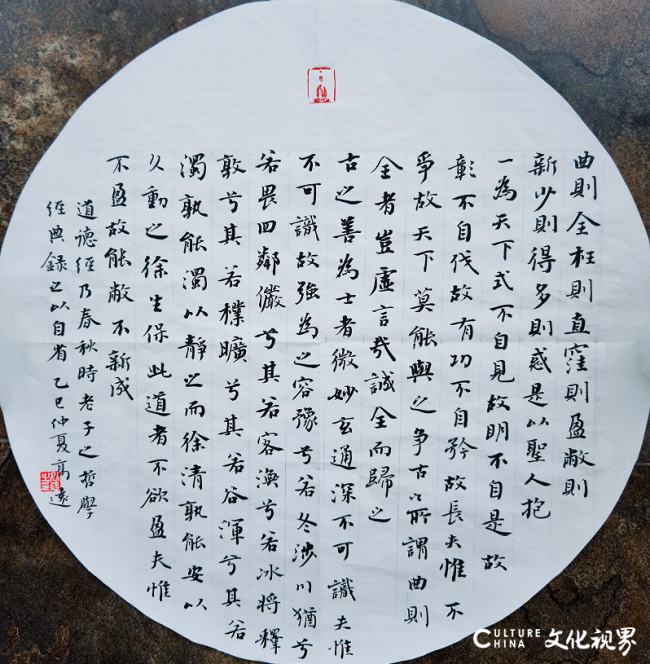 曲則全枉則直窪則盈敝則
新少則得多則惑是以聖人抱
一為天下式不自見故明不自是故
彰不自伐故有功不自矜故長夫惟不
爭故天下莫能與之争古之所謂曲則
全者豈虛言哉誠全而歸之
古之善為士者微妙玄通深不可識夫惟
不可識故強為之容豫兮若冬涉川猶兮
若畏四鄰儼兮其若客渙兮若冰將釋
敦兮其若樸曠兮其若谷渾兮其若
濁孰能濁以靜之而徐清孰能安以
久動之徐生保此道者不欲盈夫惟
不盈故能敝不新成
道德經乃春秋時老子之哲學
經典錄之以自省乙巳仲夏高遠
CULTURE CHINA 文化视界